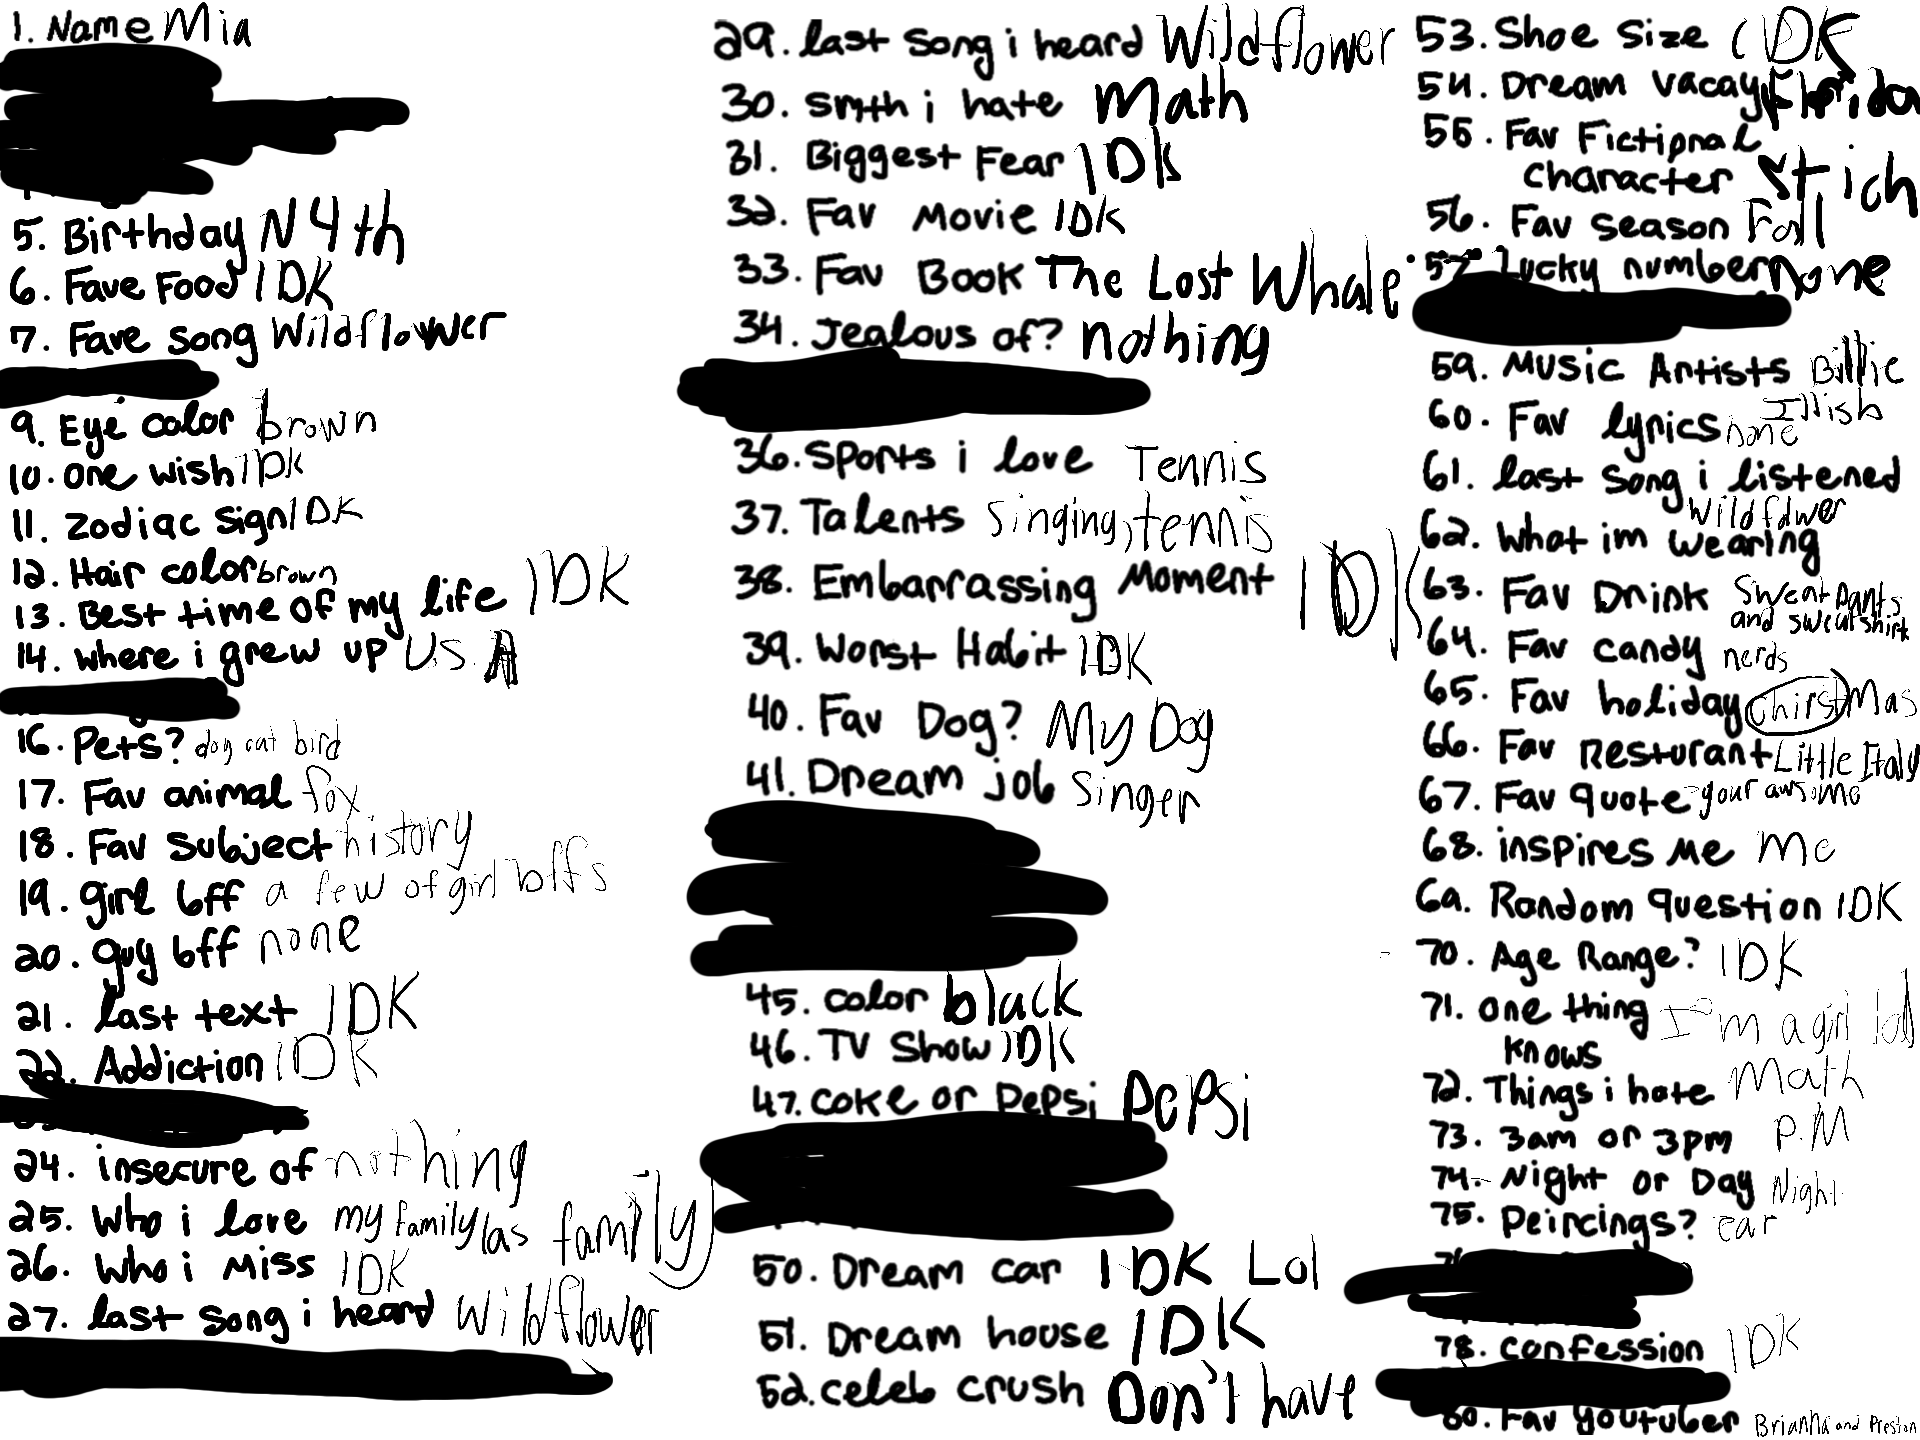 1. Name Mia
5. Birthday N 4th
6. Fave Food IDK
7. Fave song Wildflower
9. Eye color brown
10. one wish IDK
11. zodiac sign IDK
12. Hair color brown
13. Best time of my life IDK
14. where i grew up USA
16. Pets? dog cat bird
17. Fav animal fox
18. Fav subject history
19. girl bff a few of girl bffs
20. guy bff none
21. last text IDK
22. Addiction IDK
24. insecure of nothing
25. Who i love my family (as family)
26. Who i miss IDK
27. last song i heard wildflower
29. last song i heard Wildflower
30. smth i hate Math
31. Biggest Fear IDK
32. Fav Movie IDK
33. Fav Book The Lost Whale
34. Jealous of? nothing
36. Sports i love Tennis
37. Talents singing, tennis
38. Embarrassing Moment IDK
39. Worst Habit IDK
40. Fav Dog? My Dog
41. Dream job Singer
45. color black
46. TV Show IDK
47. Coke or Pepsi Pepsi
50. Dream car IDK Lol
51. Dream house IDK
52. celeb crush Don't have
53. Shoe Size IDK
54. Dream vacay Florida
55. Fav Fictional
character Stich
56. Fav season Fall
57. lucky number none
59. Music Artists Billie
Illish
60. Fav lyrics none
61. last song i listened
Wildflower
62. What im wearing
63. Fav Drink Sweat pants
and sweatshirt
64. Fav candy nerds
65. Fav holiday ChirstMas
66. Fav Resturant Little Italy
67. Fav quote your awsome
68. inspires me Me
69. Random question IDK
70. Age Range? IDK
71. one thing I'm a girl lol
knows
72. Things i hate Math
73. 3am or 3pm P.M
74. Night or Day Night
75. Peircings? ear
78. confession IDK
80. Fav youtuber Brianna and Preston